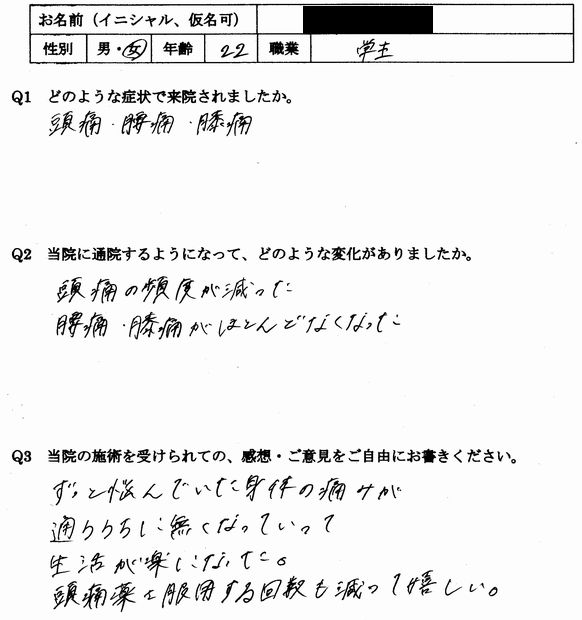 お名前（イニシャル、仮名可）
性別 男・女 年齢 22 職業 学生
Q1 どのような症状で来院されましたか。
頭痛・腰痛・膝痛
Q2 当院に通院するようになって、どのような変化がありましたか。
頭痛の頻度が減った
腰痛・膝痛がほとんどなくなった
Q3 当院の施術を受けられての、感想・ご意見をご自由にお書きください。
ずっと悩んでいた身体の痛みが
通ううちに無くなっていって
生活が楽になった。
頭痛薬を服用する回数も減って嬉しい。